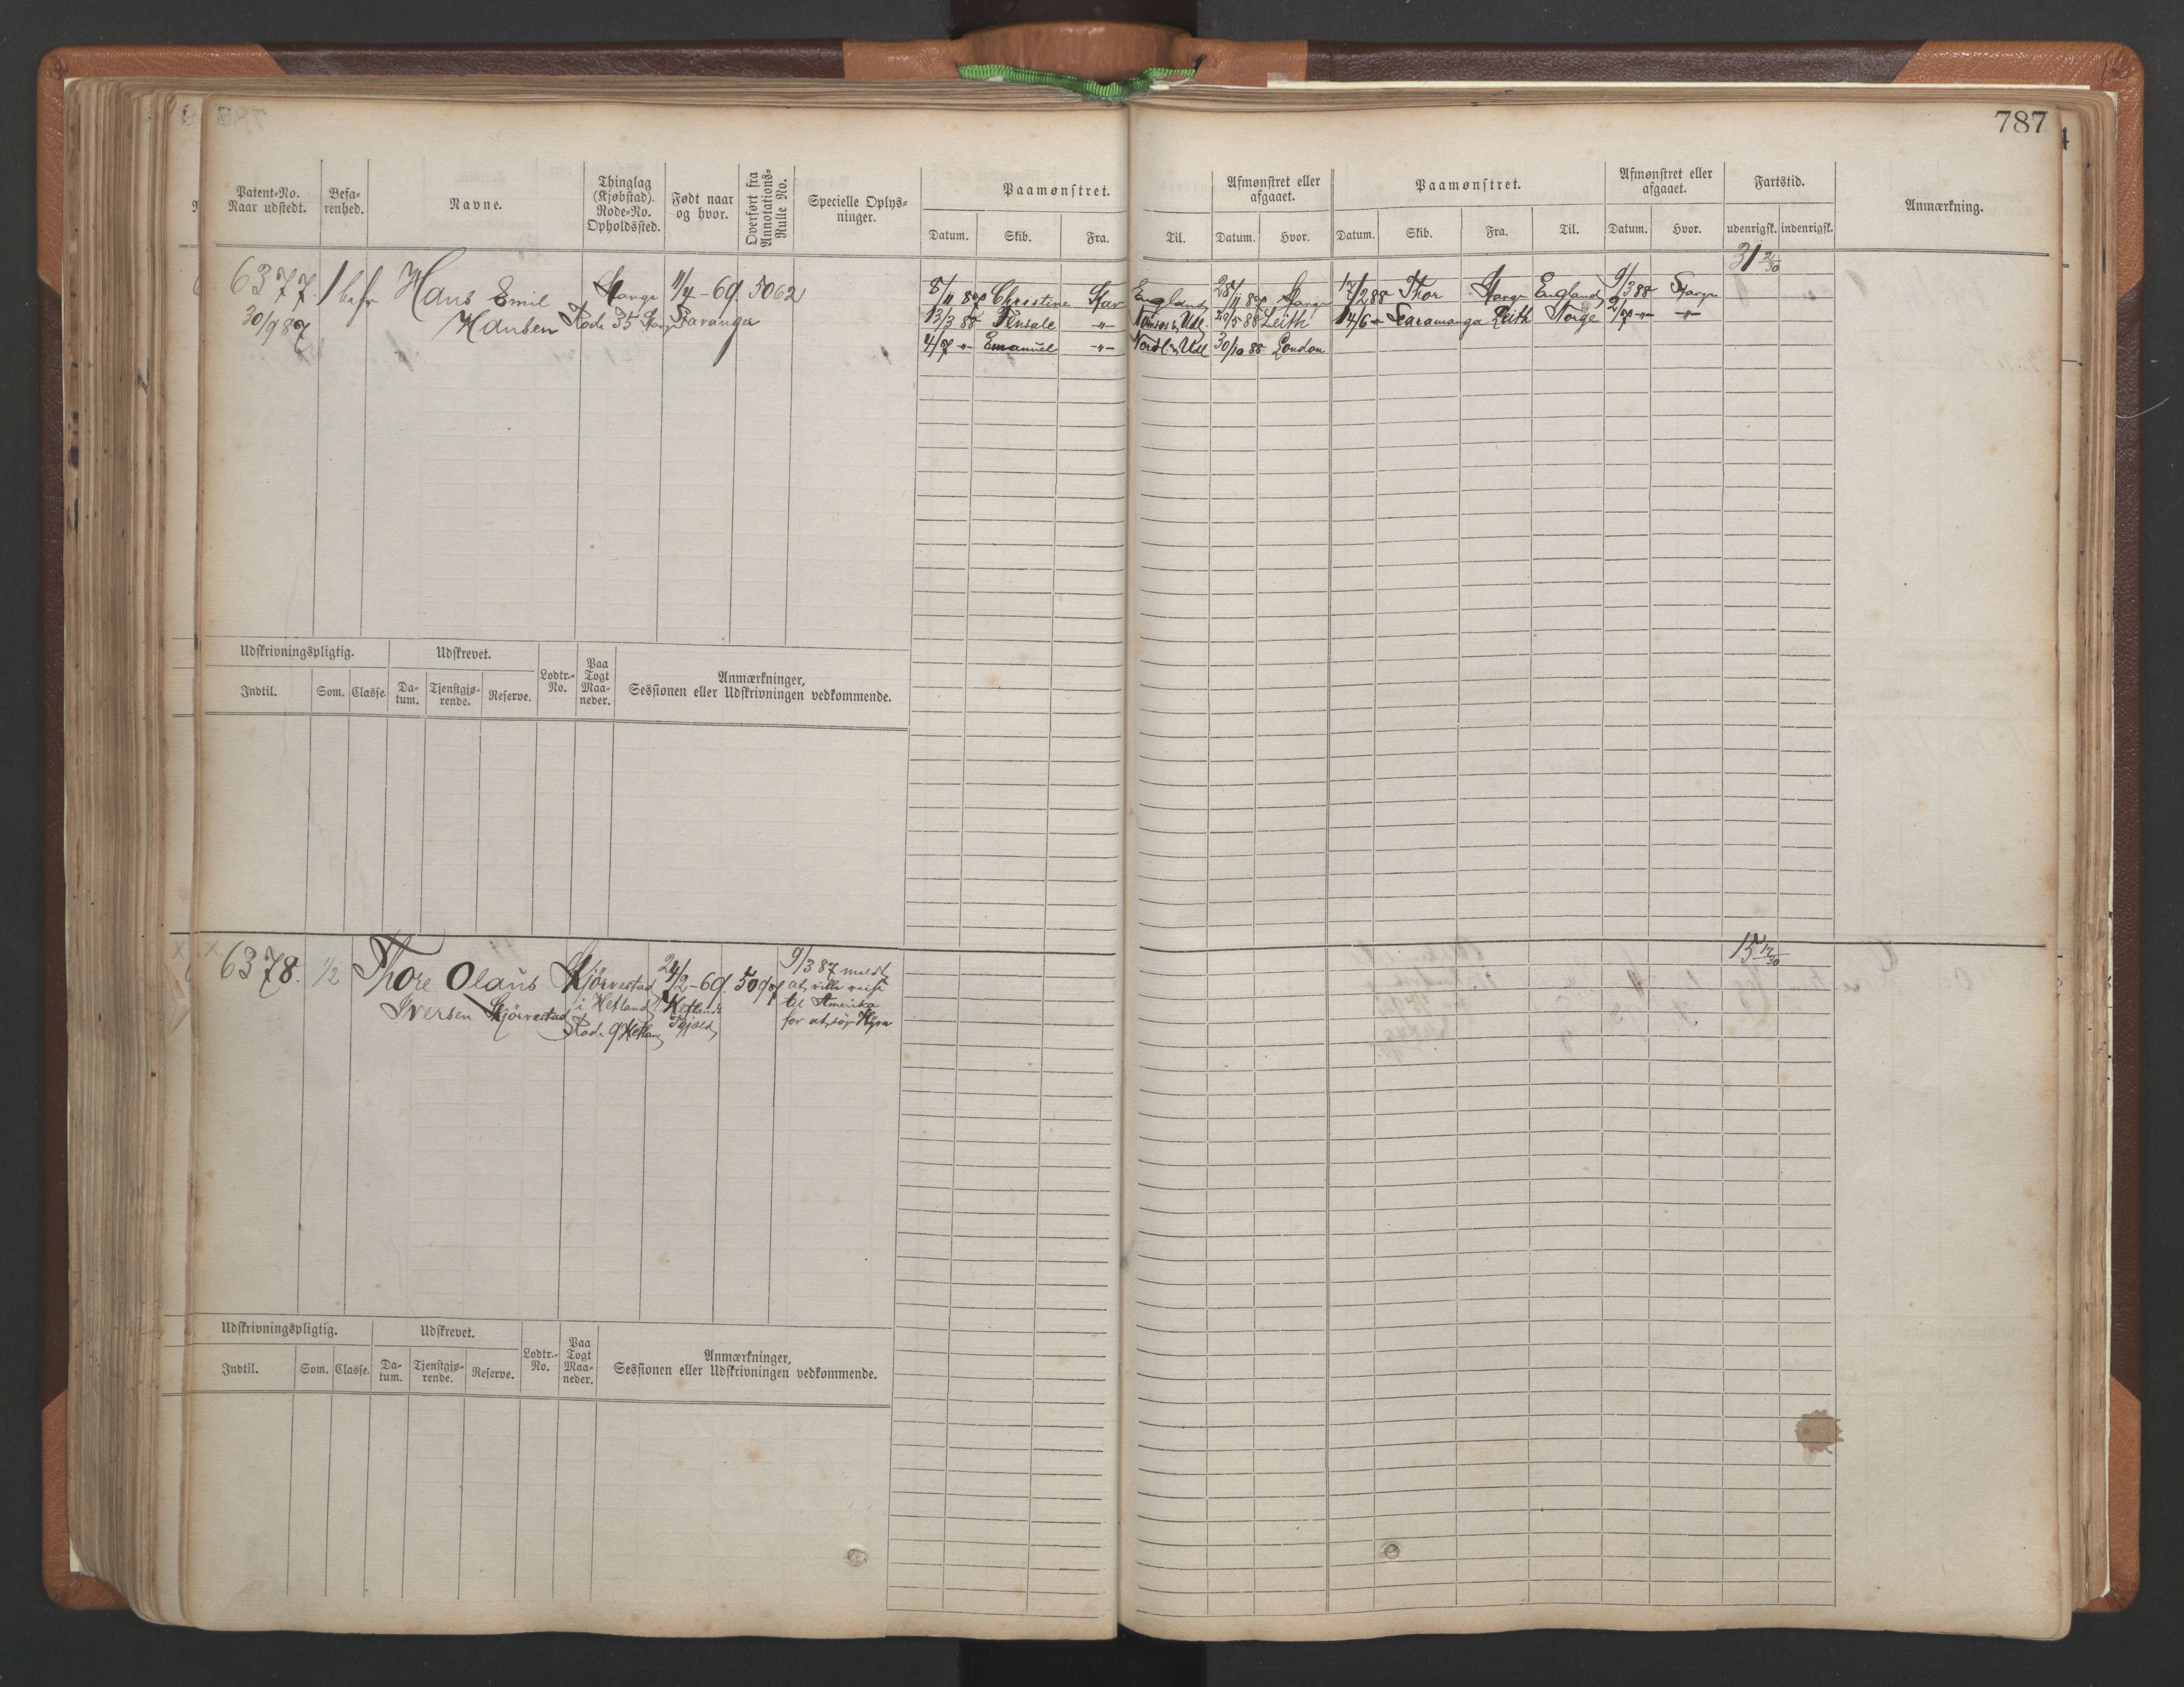 787
Patent-No.
Naar udstedt.
Befa-
renhed.
Navne.
Thinglag
(Kjøbstad).
Rode-No.
Opholdssted.
Født naar
og hvor.
Overført fra
Annotations-
Rulle No.
Specielle Oplys-
ninger.
Paamønstret.
Datum. Skib. Fra. Til.
Afmønstret eller
afgaaet.
Datum. Hvor.
Paamønstret.
Datum. Skib. Fra. Til.
Afmønstret eller
afgaaet.
Datum. Hvor.
Fartstid.
udenrigsk. indenrigsk.
Anmærkning.
6377.
30/9 87
Hans Emil
Hansen
Rode 35
11/4-69.
Stavanger
5062
8/11 87 Christine Stav England 28/11 87
17/2 88 Thor England 9/3 88
13/3 88 -"- 20/5 88 Leith
14/6 -"- Scaramanga Leith Norge 2/7 -"- -"-
4/7 -"- Emanuel -"- 30/10 88 London
31 21/30
Udskrivningspligtig.
Indtil. Som. Classe.
Udskrevet.
Da-
tum.
Tjenstgjø-
rende.
Reserve.
Lodtr.-
No.
Paa
Togt
Maa-
neder.
Anmærkninger,
Sessionen eller Udskrivningen vedkommende.
6378.
1/2
Thore Olaus
Iversen Kjörrestad
Kjörrestad
i Hetland
Rode 9 Hetland
24/2-69.
Hetlands
Pgjæld
9/3 87 meldt
at ville reise
til Amerika
for at søge Hyre
15 12/30
Udskrivningspligtig.
Indtil. Som. Classe.
Udskrevet.
Da-
tum.
Tjenstgjø-
rende.
Reserve.
Lodtr.-
No.
Paa
Togt
Maa-
neder.
Anmærkninger,
Sessionen eller Udskrivningen vedkommende.